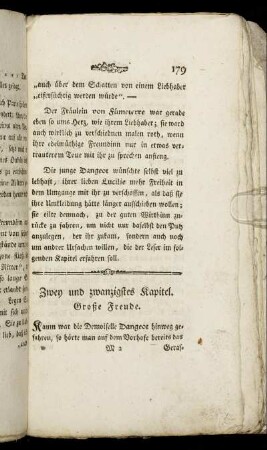 179
„auch über dem Schatten von einem Liebhaber
„eifersüchtig werden würde“. —
Der Fräulein von Fümeterre war gerade
eben so ums Herz, wie ihrem Liebhaber; sie ward
auch wirklich zu verschiednen malen roth, wenn
ihre edelmüthige Freundinn nur in etwas ver-
trauterem Tone mit ihr zu sprechen anfieng.
Die junge Dangeot wünschte selbst viel zu
lebhaft, ihrer lieben Lucilie mehr Freiheit in
dem Umgange mit ihr zu verschaffen, als daß sie
ihre Umkleidung hätte länger aufschieben wollen;
sie eilte demnach, zu der guten Wirthinn zu-
rücke zu fahren, um nicht nur daselbst den Putz
anzulegen, der ihr zukam, sondern auch noch
um andrer Ursachen willen, die der Leser im fol-
genden Kapitel erfahren soll.
Zwey und zwanzigstes Kapitel.
Große Freude.
Kaum war die Demoiselle Dangeot hinweg ge-
fahren, so hörte man auf dem Vorhofe bereits das
M 2
Geraß-